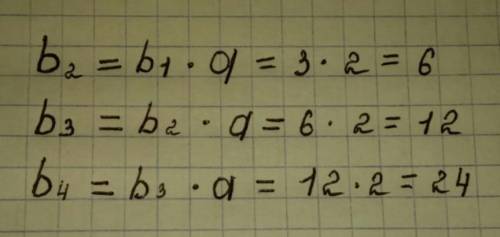 b₂ = b₁ · q = 3 · 2 = 6
b₃ = b₂ · q = 6 · 2 = 12
b₄ = b₃ · q = 12 · 2 = 24